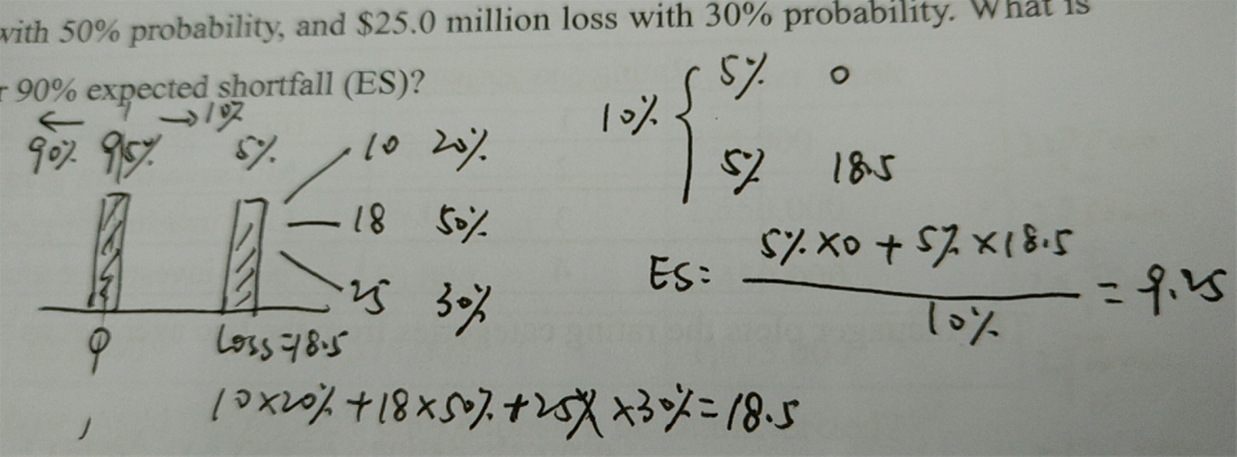 with 50% probability, and $25.0 million loss with 30% probability. What is
90% expected shortfall (ES)?
← → 10%
90% 95% 5%
10 20%
18 50%
25 30%
0 Loss=18.5
10×20% + 18×50% + 25% ×30% = 18.5
10% { 5% 0
5% 18.5
ES= 5%×0 + 5%×18.5 / 10% = 9.25